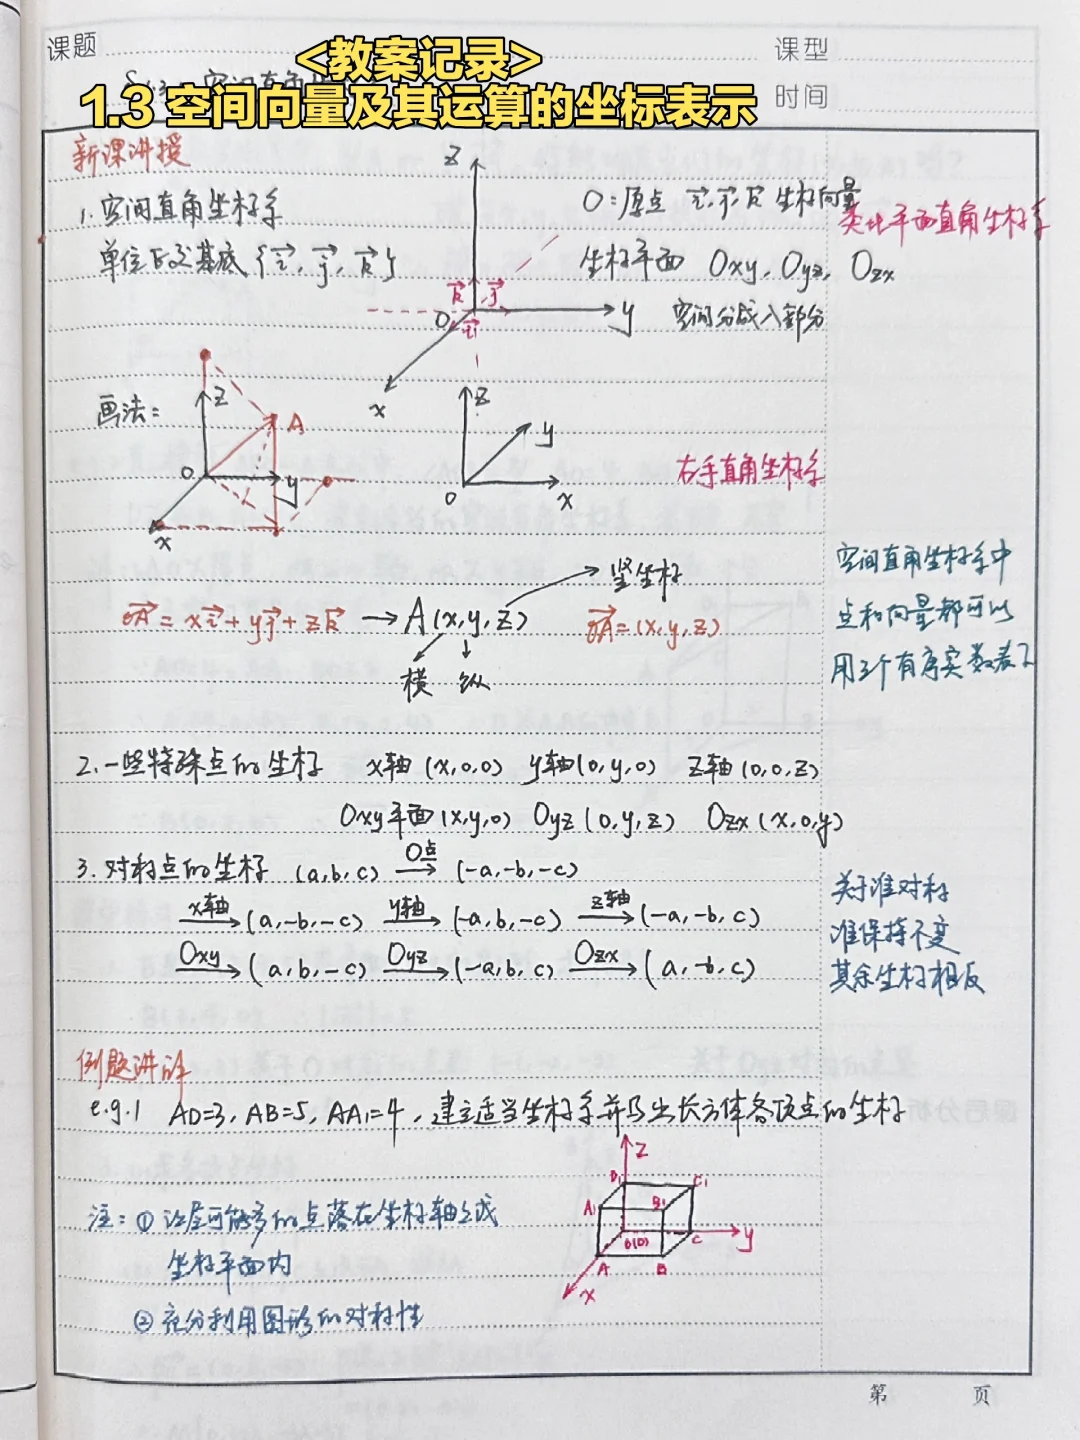 课题
<教案记录>
课型
1.3 空间向量及其运算的坐标表示
时间
新课讲授
z
1. 空间直角坐标系
O:原点 i⃗, j⃗, k⃗ 坐标向量
类比平面直角坐标系
单位正交基底 {i⃗, j⃗, k⃗}
坐标平面 Oxy, Oyz, Ozx
k⃗ j⃗
O i⃗ y
空间分成八部分
x
画法:
z A O y x
z y O x
右手直角坐标系
空间直角坐标系中
点和向量都可以
用3个有序实数表示
竖坐标
OA⃗ = xi⃗ + yj⃗ + zk⃗ → A(x, y, z) OA⃗ = (x, y, z)
横 纵
2. 一些特殊点的坐标 x轴 (x,0,0) y轴 (0,y,0) z轴 (0,0,z)
Oxy平面 (x,y,0) Oyz (0,y,z) Ozx (x,0,y)
3. 对称点的坐标 (a,b,c) O点→ (-a,-b,-c)
x轴→ (a,-b,-c) y轴→ (-a,b,-c) z轴→ (-a,-b,c)
Oxy→ (a,b,-c) Oyz→ (-a,b,c) Ozx→ (a,-b,c)
关于谁对称
谁保持不变
其余坐标相反
例题讲解
e.g.1 AD=3, AB=5, AA1=4, 建立适当坐标系并写出长方体各顶点的坐标
z
D1 C1
A1 B1
D(O) C y
A B
x
注: ① 让尽可能多的点落在坐标轴上或
坐标平面内
② 充分利用图形的对称性
第 页